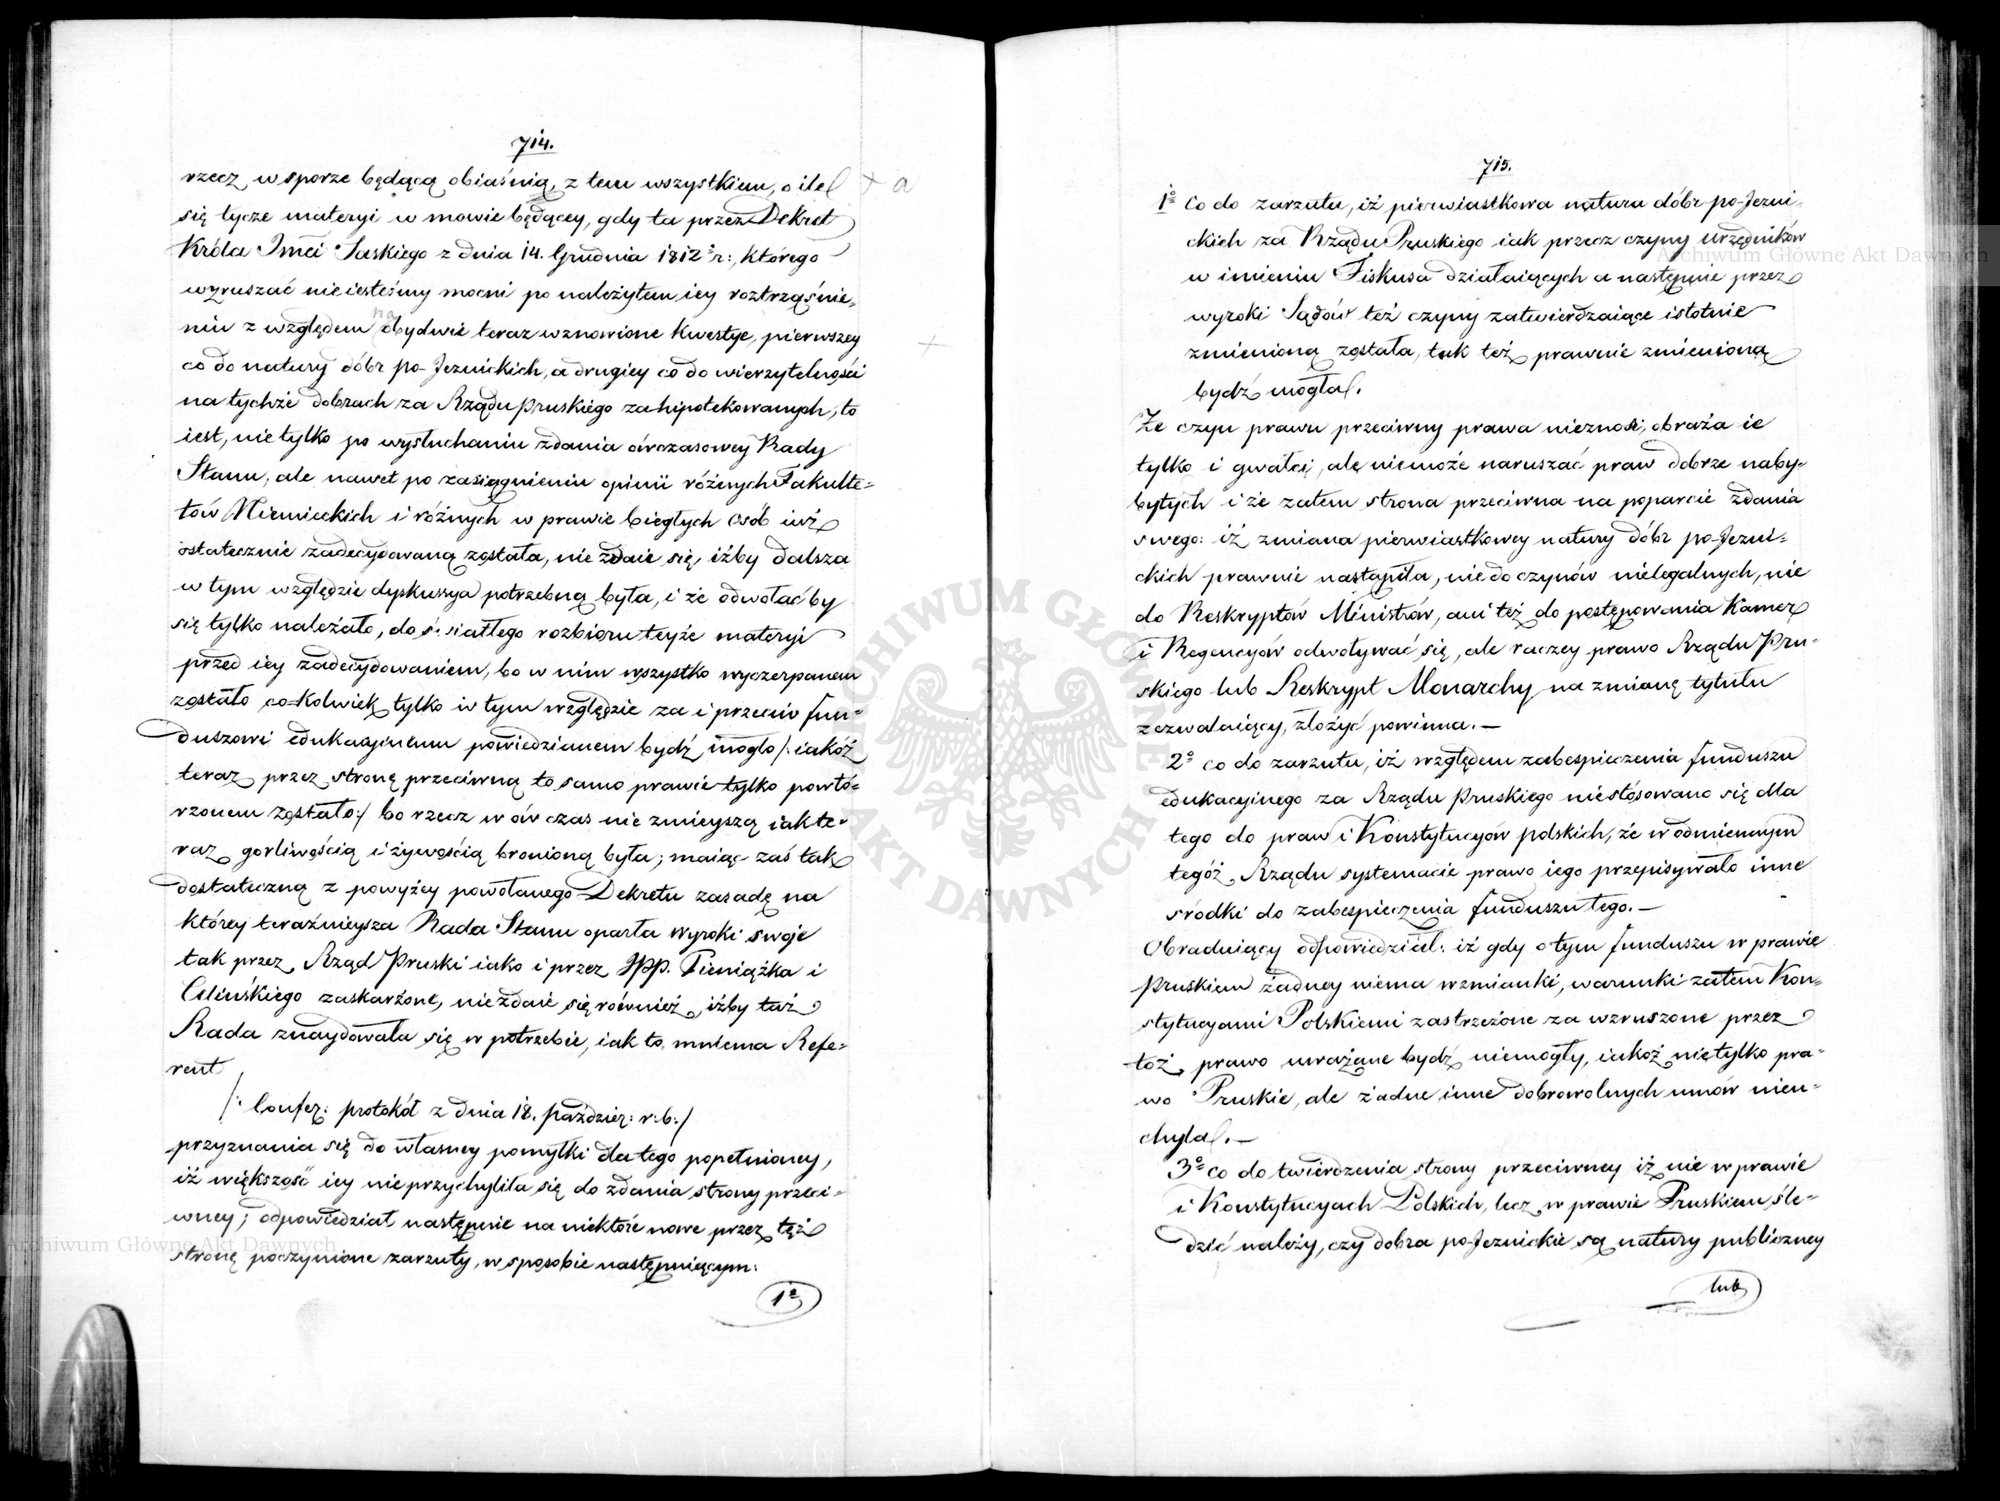 714.
rzecz w sporze będącą obiaśnią, z tem wszystkiem, o ile
się tycze materyi w mowie będącey, gdy ta przez Dekret
Króla Imci Saskiego z dnia 14. Grudnia 1812 r:, którego
wzruszać nie iesteśmy mocni po należytem iey roztrząśnie-
niu z względem na obydwie teraz wznowione kwestye, pierwszey
co do natury dóbr po-Jezuickich, a drugiey co do wierzytelności
na tychże dobrach za Rządu pruskiego zahipotekowanych, to
iest, nie tylko po wysłuchaniu zdania ówczasowey Rady
Stanu, ale nawet po zasiągnieniu opinii różnych Fakulte-
tów Niemieckich i różnych w prawie biegłych osób iuż
ostatecznie zadecydowaną została, nie zdaie się, iżby dalsza
w tym względzie dyskussya potrzebną była, i że odwołać by
się tylko należało, do ś. siałłego rozbioru teyże materyi
przed iey zadecydowaniem, bo w nim wszystko wyczerpanem
zostało co-kolwiek tylko w tym względzie za i przeciw fun-
duszowi edukacyinemu powiedzianem bydź mogło /: iakóż
teraz przez stronę przeciwną to samo prawie tylko powtó-
rzonem zostało :/ bo rzecz w ów czas nie zmieyszą iak te-
raz gorliwością i żywością bronioną była; maiąc zaś tak
dostateczną z powyżey powołanego Dekretu zasadę na
którey teraźnieysza Rada Stanu oparła wyroki swoje
tak przez Rząd Pruski iako i przez JPP. Pieniążka i
Celińskiego zaskarżone, nie zdaie się również, iżby taż
Rada znaydowała się w potrzebie, iak to mniema Refe-
rent
/: Confer: protokół z dnia 18. Paździer: r: b: /
przyznania się do własney pomyłki dla tego popełnioney,
iż większość iey nie przychyliła się do zdania strony przeci-
wney; odpowiedział następnie na niektóre nowe przez tęż
stronę poczynione zarzuty, w sposobie następuiącym:
1º
+ a
+
715.
1º Co do zarzutu, iż pierwiastkowa natura dóbr po-Jezui-
ckich za Rządu Pruskiego iak przecz czyny urzędników
w imieniu Fiskusa działaiących a następnie przez
wyroki Sądów też czyny zatwierdzaiące istotnie
zmienioną została, tak też prawnie zmienioną
bydź mogła.
Że czyn prawu przeciwny prawa nieznosi, obraża ie
tylko i gwałci, ale niemoże naruszać praw dobrze naby-
bytych i że zatem strona przeciwna na poparcie zdania
swego: iż zmiana pierwiastkowey natury dóbr po-Jezui-
ckich prawnie nastąpiła, nie do czynów nielegalnych, nie
do Reskryptów Ministrów, ani też do postępowania Kamer
i Regencyów odwoływać się, ale raczey prawo Rządu Pru-
skiego lub Reskrypt Monarchy na zmianę tytułu
zezwalaiący, złożyć powinna. —
2º co do zarzutu, iż względem zabespieczenia funduszu
edukacyinego za Rządu pruskiego niestósowano się dla
tego do praw i Konstytucyów polskich, że w odmiennym
tegóż Rządu systemacie prawo iego przepisywało inne
środki do zabespieczenia funduszu tego. —
Obraduiący odpowiedział: iż gdy o tym funduszu w prawie
pruskiem żadney niema wzmianki, warunki zatem Kon-
stytucyami Polskiemi zastrzeżone za wzruszone przez
toż prawo uważane bydź niemogły, iakoż nie tylko pra-
wo Pruskie, ale żadne inne dobrowolnych umów nieu-
chyla. —
3º co do twierdzenia strony przeciwney iż nie w prawie
i Konstytucyach Polskich, lecz w prawie Pruskiem śle-
dzić należy, czy dobra po-Jezuickie są natury publiczney
lub
Archiwum Główne Akt Dawnych
Archiwum Główne Akt Dawnych
ARCHIWUM GŁÓWNE AKT DAWNYCH